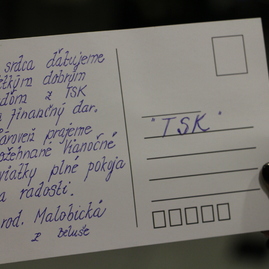 srdca ďakujeme
všetkým dobrým
ľuďom z TSK
a finančný dar.
Zároveň prajeme
požehnané Vianočné
sviatky plné pokoja
a radosti.
rod. Malobická
z Beluše
"TSK"